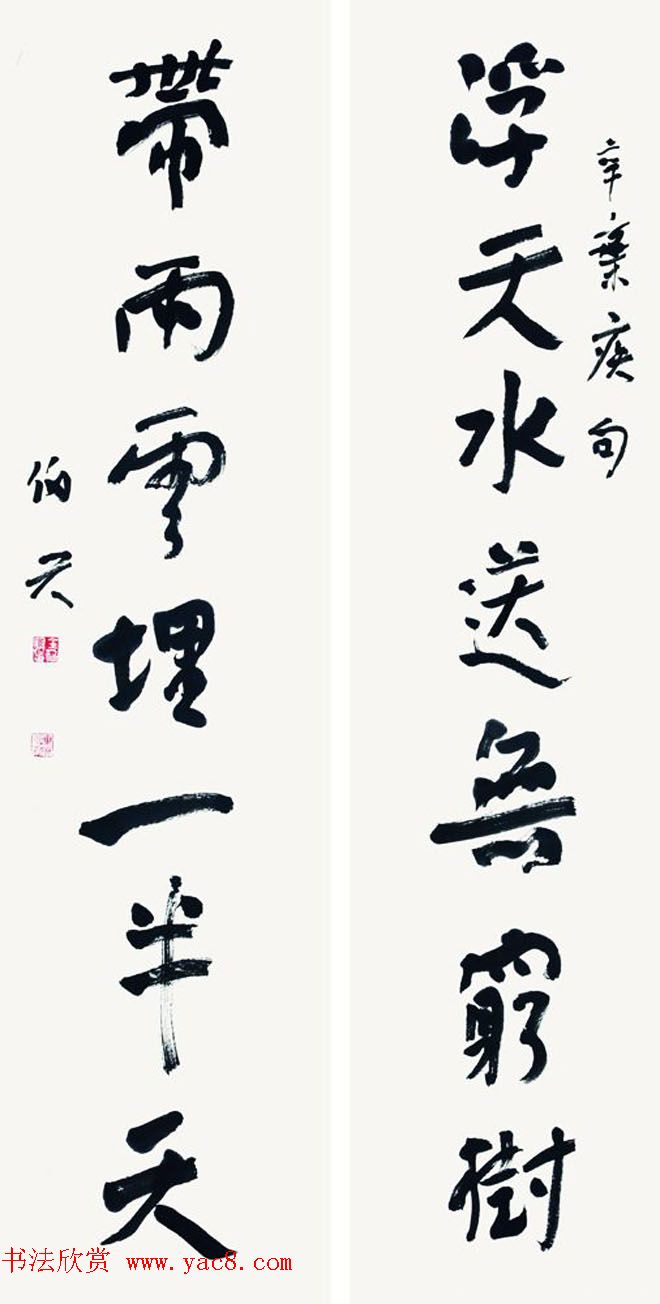 辛棄疾句
浮天水送無窮樹
帶雨雲埋一半天
书法欣赏 www.yac8.com